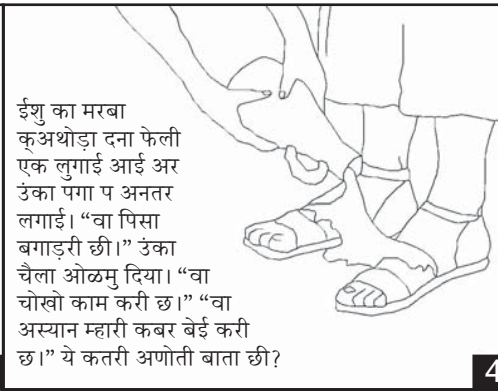 ईशु का मरबा
क्अथोड़ा दना फेली
एक लुगाई आई अर
उंका पगा प अनतर
लगाई। “वा पिसा
बगाड़री छी।” उंका
चैला ओळमु दिया। “वा
चोखो काम करी छ।” “वा
अस्यान म्हारी कबर बेई करी
छ।” ये कतरी अणोती बाता छी?
4